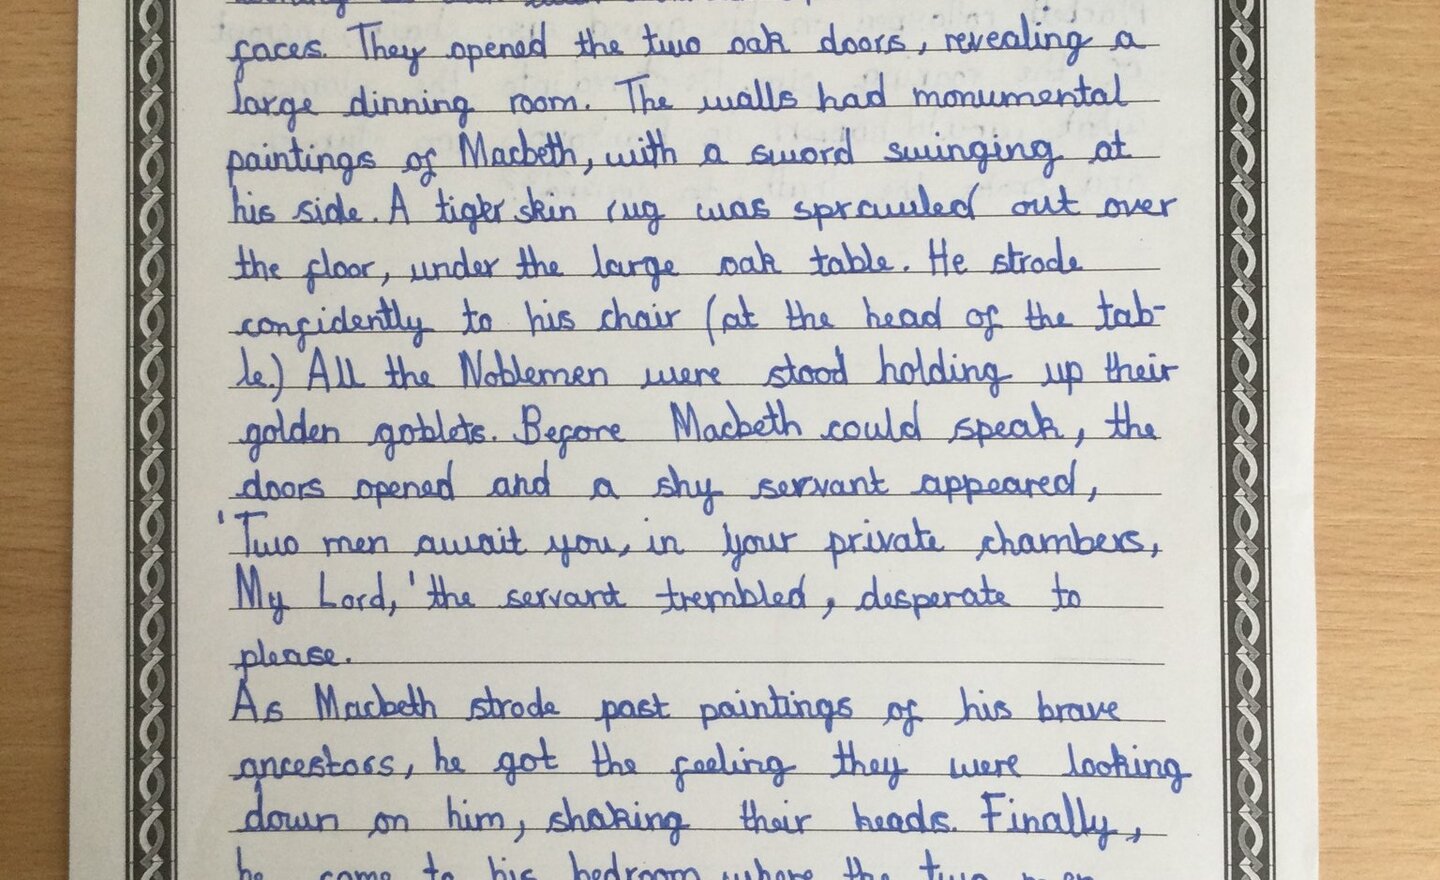 faces. They opened the two oak doors, revealing a
large dinning room. The walls had monumental
paintings of Macbeth, with a sword swinging at
his side. A tiger skin rug was sprawled out over
the floor, under the large oak table. He strode
confidently to his chair (at the head of the tab-
le.) All the Noblemen were stood holding up their
golden goblets. Before Macbeth could speak, the
doors opened and a shy servant appeared,
'Two men await you, in your private chambers,
My Lord,' the servant trembled, desperate to
please.
As Macbeth strode past paintings of his brave
ancestors, he got the feeling they were looking
down on him, shaking their heads. Finally,
he came to his bedroom where the two men